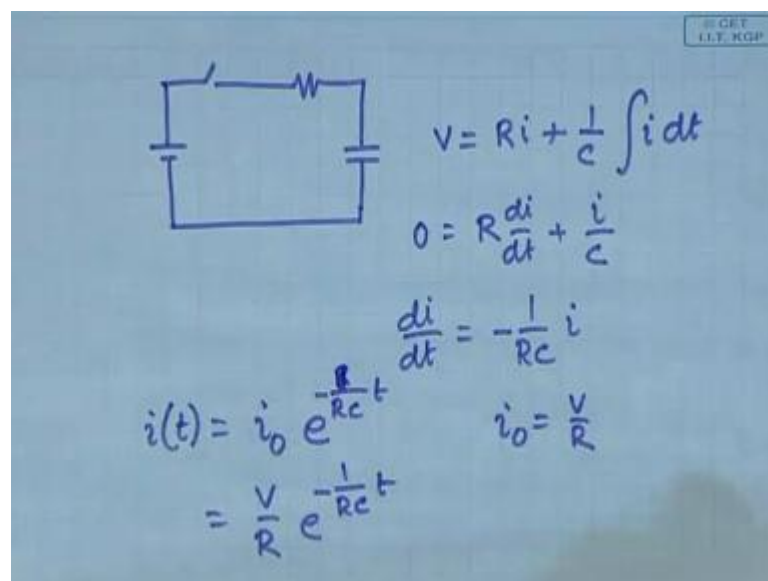 © CET
I.I.T. KGP
V = Ri + 1/C ∫ i dt
0 = R di/dt + i/C
di/dt = - 1/RC i
i(t) = i₀ e^(-1/RC t)
i₀ = V/R
= V/R e^(-1/RC t)